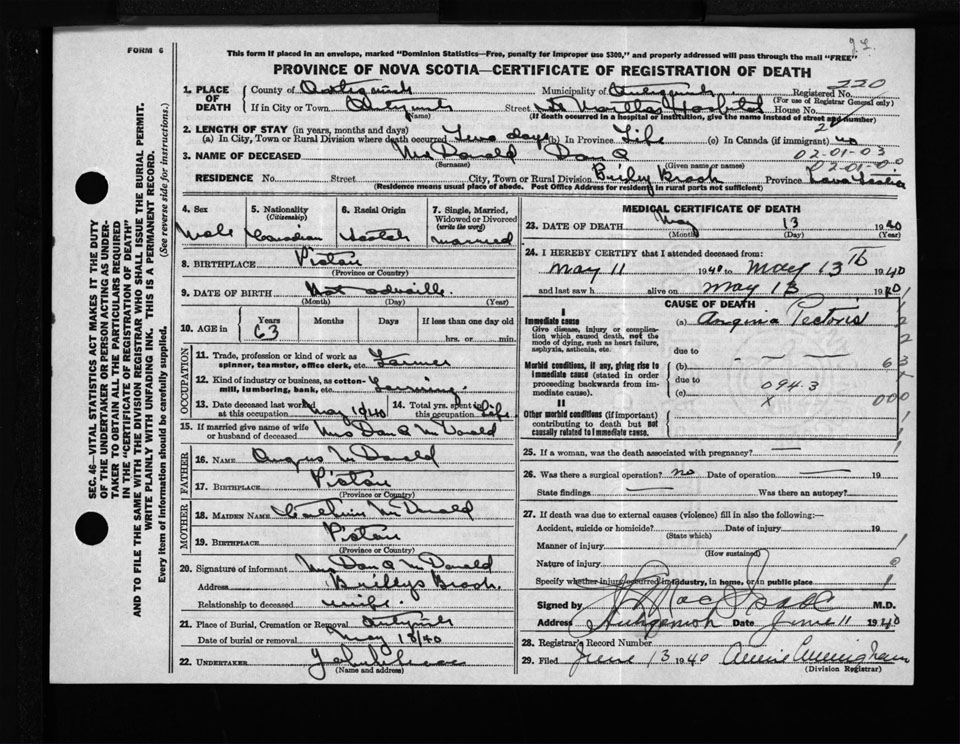 FORM 6
This form if placed in an envelope, marked "Dominion Statistics—Free, penalty for improper use $300," and properly addressed will pass through the mail "FREE"
PROVINCE OF NOVA SCOTIA—CERTIFICATE OF REGISTRATION OF DEATH
220
1. PLACE OF DEATH
County of Antigonish Municipality of Antigonish Registered No.
(For use of Registrar General only)
If in City or Town Street St Marthas Hospital House No.
(Name) (If death occurred in a hospital or institution, give the name instead of street and number)
2. LENGTH OF STAY (in years, months and days)
(a) In City, Town or Rural Division where death occurred Two days (b) In Province Life (c) In Canada (if immigrant) no
02-01-03
3. NAME OF DECEASED McDonald Dan
(Surname) (Given name or names)
RESIDENCE No. Street City, Town or Rural Division Brook Province Nova Scotia
(Residence means usual place of abode. Post Office Address for residents in rural parts not sufficient)
4. Sex
Male
5. Nationality (Citizenship)
Canadian
6. Racial Origin
Scotch
7. Single, Married, Widowed or Divorced (write the word)
Married
8. BIRTHPLACE
(Province or Country)
9. DATE OF BIRTH Not
(Month) (Day) (Year)
10. AGE in Years Months Days If less than one day old
63 hrs. or min.
OCCUPATION
11. Trade, profession or kind of work as spinner, teamster, office clerk, etc. Farmer
12. Kind of industry or business, as cotton-mill, lumbering, bank, etc. Farming
13. Date deceased last worked at this occupation May 1940 14. Total yrs. spent in this occupation Life
15. If married give name of wife or husband of deceased Mrs Dan McDonald
FATHER
16. NAME Angus McDonald
17. BIRTHPLACE
(Province or Country)
MOTHER
18. MAIDEN NAME McDonald
19. BIRTHPLACE
(Province or Country)
20. Signature of informant Mrs Dan McDonald
Address Brook
Relationship to deceased wife
21. Place of Burial, Cremation or Removal
Date of burial or removal May 18/40
22. UNDERTAKER
(Name and address)
MEDICAL CERTIFICATE OF DEATH
23. DATE OF DEATH May 13 1940
(Month) (Day) (Year)
24. I HEREBY CERTIFY that I attended deceased from:
May 11 1940 to May 13th 1940
and last saw h alive on May 13 1940
CAUSE OF DEATH
I
Immediate cause (a) Angina Pectoris
Give disease, injury or complication which caused death, not the mode of dying, such as heart failure, asphyxia, asthenia, etc.
due to
Morbid conditions, if any, giving rise to immediate cause (stated in order proceeding backwards from immediate cause)
(b)
due to
094.3
(c)
X
II
Other morbid conditions (if important) contributing to death but not causally related to immediate cause.
25. If a woman, was the death associated with pregnancy?
26. Was there a surgical operation? no Date of operation 19
State findings Was there an autopsy?
27. If death was due to external causes (violence) fill in also the following:—
Accident, suicide or homicide? Date of injury 19
(State which)
Manner of injury
(How sustained)
Nature of injury
Specify whether injury occurred in industry, in home, or in public place
Signed by M.D.
Address Antigonish Date June 11 1940
28. Registrar's Record Number
29. Filed June 13 1940 Annie Cunningham
(Division Registrar)
SEC. 46—VITAL STATISTICS ACT MAKES IT THE DUTY
OF THE UNDERTAKER OR PERSON ACTING AS UNDER-
TAKER TO OBTAIN ALL THE PARTICULARS REQUIRED
IN THE "CERTIFICATE OF REGISTRATION OF DEATH"
AND TO FILE THE SAME WITH THE DIVISION REGISTRAR WHO SHALL ISSUE THE BURIAL PERMIT.
WRITE PLAINLY WITH UNFADING INK. THIS IS A PERMANENT RECORD.
Every item of information should be carefully supplied. (See reverse side for instructions.)